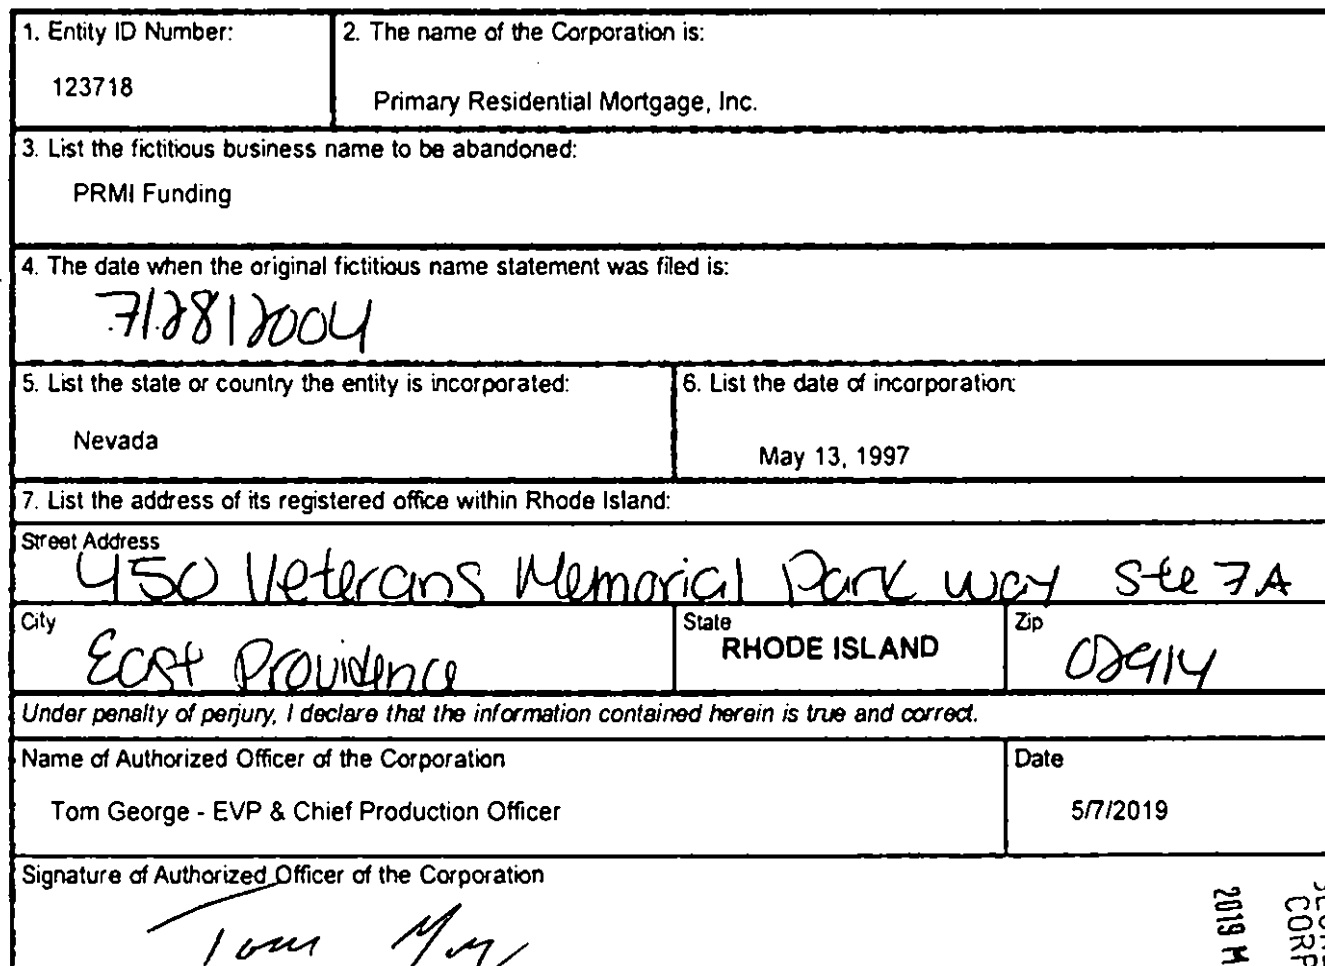 1. Entity ID Number:
123718
2. The name of the Corporation is:
Primary Residential Mortgage, Inc.
3. List the fictitious business name to be abandoned:
PRMI Funding
4. The date when the original fictitious name statement was filed is:
7/28/2004
5. List the state or country the entity is incorporated:
Nevada
6. List the date of incorporation:
May 13, 1997
7. List the address of its registered office within Rhode Island:
Street Address
450 Veterans Memorial Park way Ste 7A
City
East Providence
State
RHODE ISLAND
Zip
02914
Under penalty of perjury, I declare that the information contained herein is true and correct.
Name of Authorized Officer of the Corporation
Tom George - EVP & Chief Production Officer
Date
5/7/2019
Signature of Authorized Officer of the Corporation
Tom
2019 M
CORP